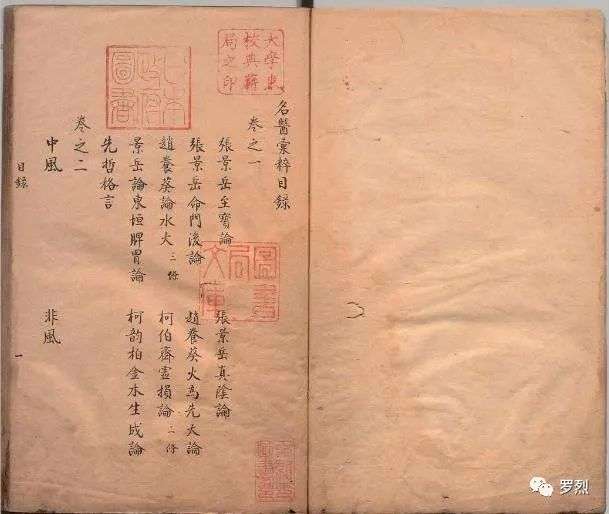 大學東
校典籍
局之印
日本
政府
圖書
名醫彙粹目錄
卷之一
張景岳至寶論 張景岳真陰論
張景岳命門後論 趙養葵火為先天論
趙養葵論水火三條 柯伯齊虛損論二條
景岳論東垣脾胃論 柯韵柏金木生成論
先哲格言
卷之二
中風 非風
目錄
一
圖書
局
文庫
罗烈